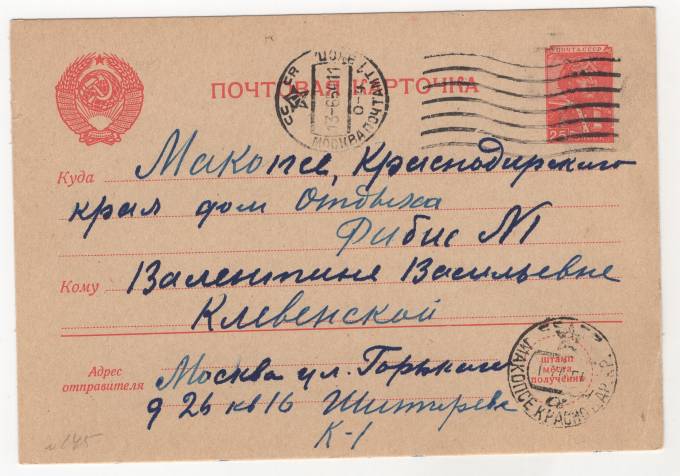 ПОЧТА СССР
ПОЧТОВАЯ КАРТОЧКА
СССР
МОСКВА ПОЧТАМТ
Куда Макопсе, Краснодарского
края дом Отдыха
Рабис №1
Кому Валентине Васильевне
Клевенской
Адрес отправителя
Москва ул. Горького
д 26 кв 16
К-1
штамп
места
получения
МАКОПСЕ КРАСНОДАР.